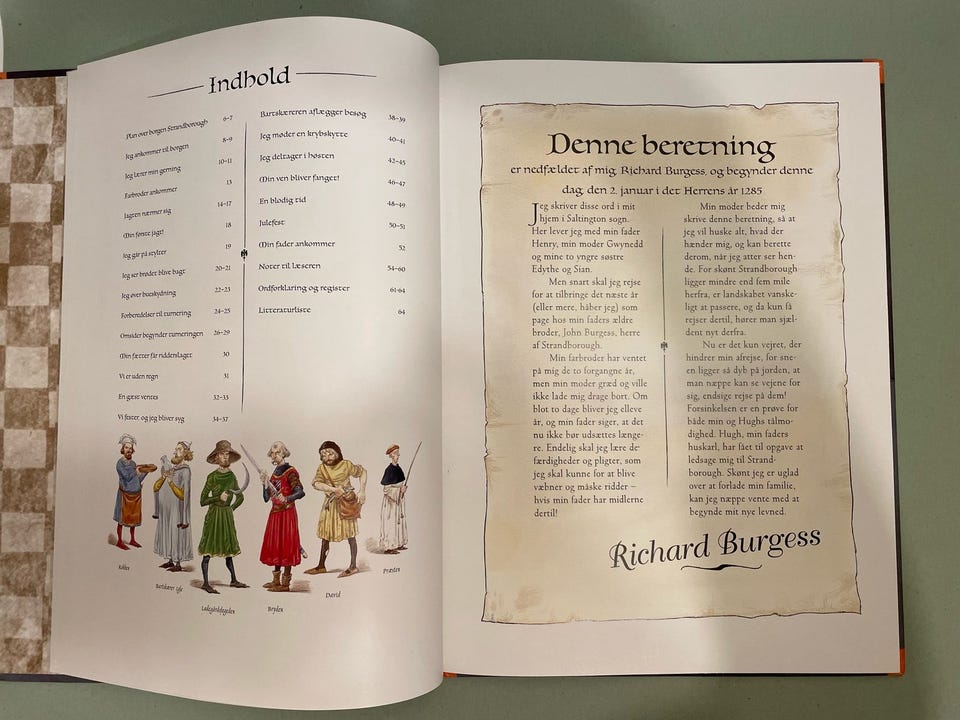 Indhold
Plan over borgen Strandborough 6–7
Jeg ankommer til borgen 8–9
Jeg lærer min gerning 10–11
Farbroder ankommer 13
Jagten nærmer sig 14–17
Min første jagt! 18
Jeg går på stylter 19
Jeg ser brødet blive bagt 20–21
Jeg øver bueskydning 22–23
Forberedelser til turnering 24–25
Omsider begynder turneringen 26–29
Min fætter får ridderslaget 30
Vi er uden regn 31
En gæst ventes 32–33
Vi fester, og jeg bliver syg 34–37
Bartskæreren aflægger besøg 38–39
Jeg møder en krybskytte 40–41
Jeg deltager i høsten 42–45
Min ven bliver fanget! 46–47
En blodig tid 48–49
Julefest 50–51
Min fader ankommer 52
Noter til læseren 54–60
Ordforklaring og register 61–64
Litteraturliste 64
Kokken
Ladegårdsfogeden
Bryden
David
Præsten
Denne beretning
er nedfældet af mig, Richard Burgess, og begynder denne
dag, den 2. januar i det Herrens år 1285
Jeg skriver disse ord i mit
hjem i Saltington sogn.
Her lever jeg med min fader
Henry, min moder Gwynedd
og mine to yngre søstre
Edythe og Sian.
Men snart skal jeg rejse
for at tilbringe det næste år
(eller mere, håber jeg) som
page hos min faders ældre
broder, John Burgess, herre
af Strandborough.
Min farbroder har ventet
på mig de to forgangne år,
men min moder græd og ville
ikke lade mig drage bort. Om
blot to dage bliver jeg elleve
år, og min fader siger, at det
nu ikke bør udsættes længe-
re. Endelig skal jeg lære de
færdigheder og pligter, som
jeg skal kunne for at blive
væbner og måske ridder –
hvis min fader har midlerne
dertil!
Min moder beder mig
skrive denne beretning, så at
jeg vil huske alt, hvad der
hænder mig, og kan berette
derom, når jeg atter ser hen-
de. For skønt Strandborough
ligger mindre end fem mile
herfra, er landskabet vanske-
ligt at passere, og da kun få
rejser dertil, hører man sjæl-
dent nyt derfra.
Nu er det kun vejret, der
hindrer min afrejse, for sne-
en ligger så dyb på jorden, at
man næppe kan se vejene for
sig, endsige rejse på dem!
Forsinkelsen er en prøve for
både min og Hughs tålmo-
dighed. Hugh, min faders
huskarl, har fået til opgave at
ledsage mig til Strand-
borough. Skønt jeg er uglad
over at forlade min familie,
kan jeg næppe vente med at
begynde mit nye levned.
Richard Burgess